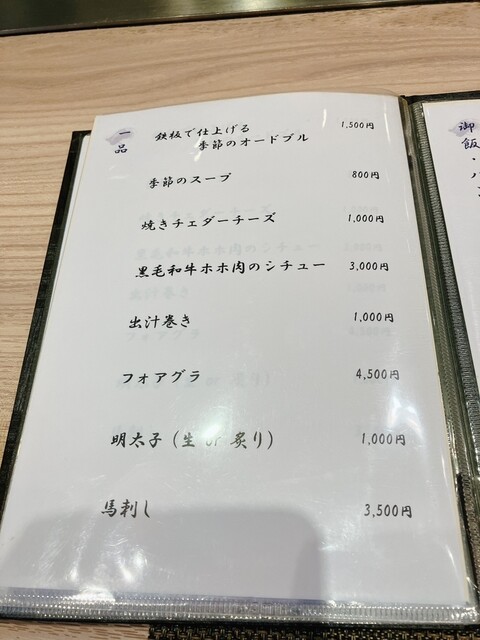 一品
鉄板で仕上げる
季節のオードブル 1,500円
季節のスープ 800円
焼きチェダーチーズ 1,000円
黒毛和牛ホホ肉のシチュー 3,000円
出汁巻き 1,000円
フォアグラ 4,500円
明太子（生 or 炙り） 1,000円
馬刺し 3,500円
御飯